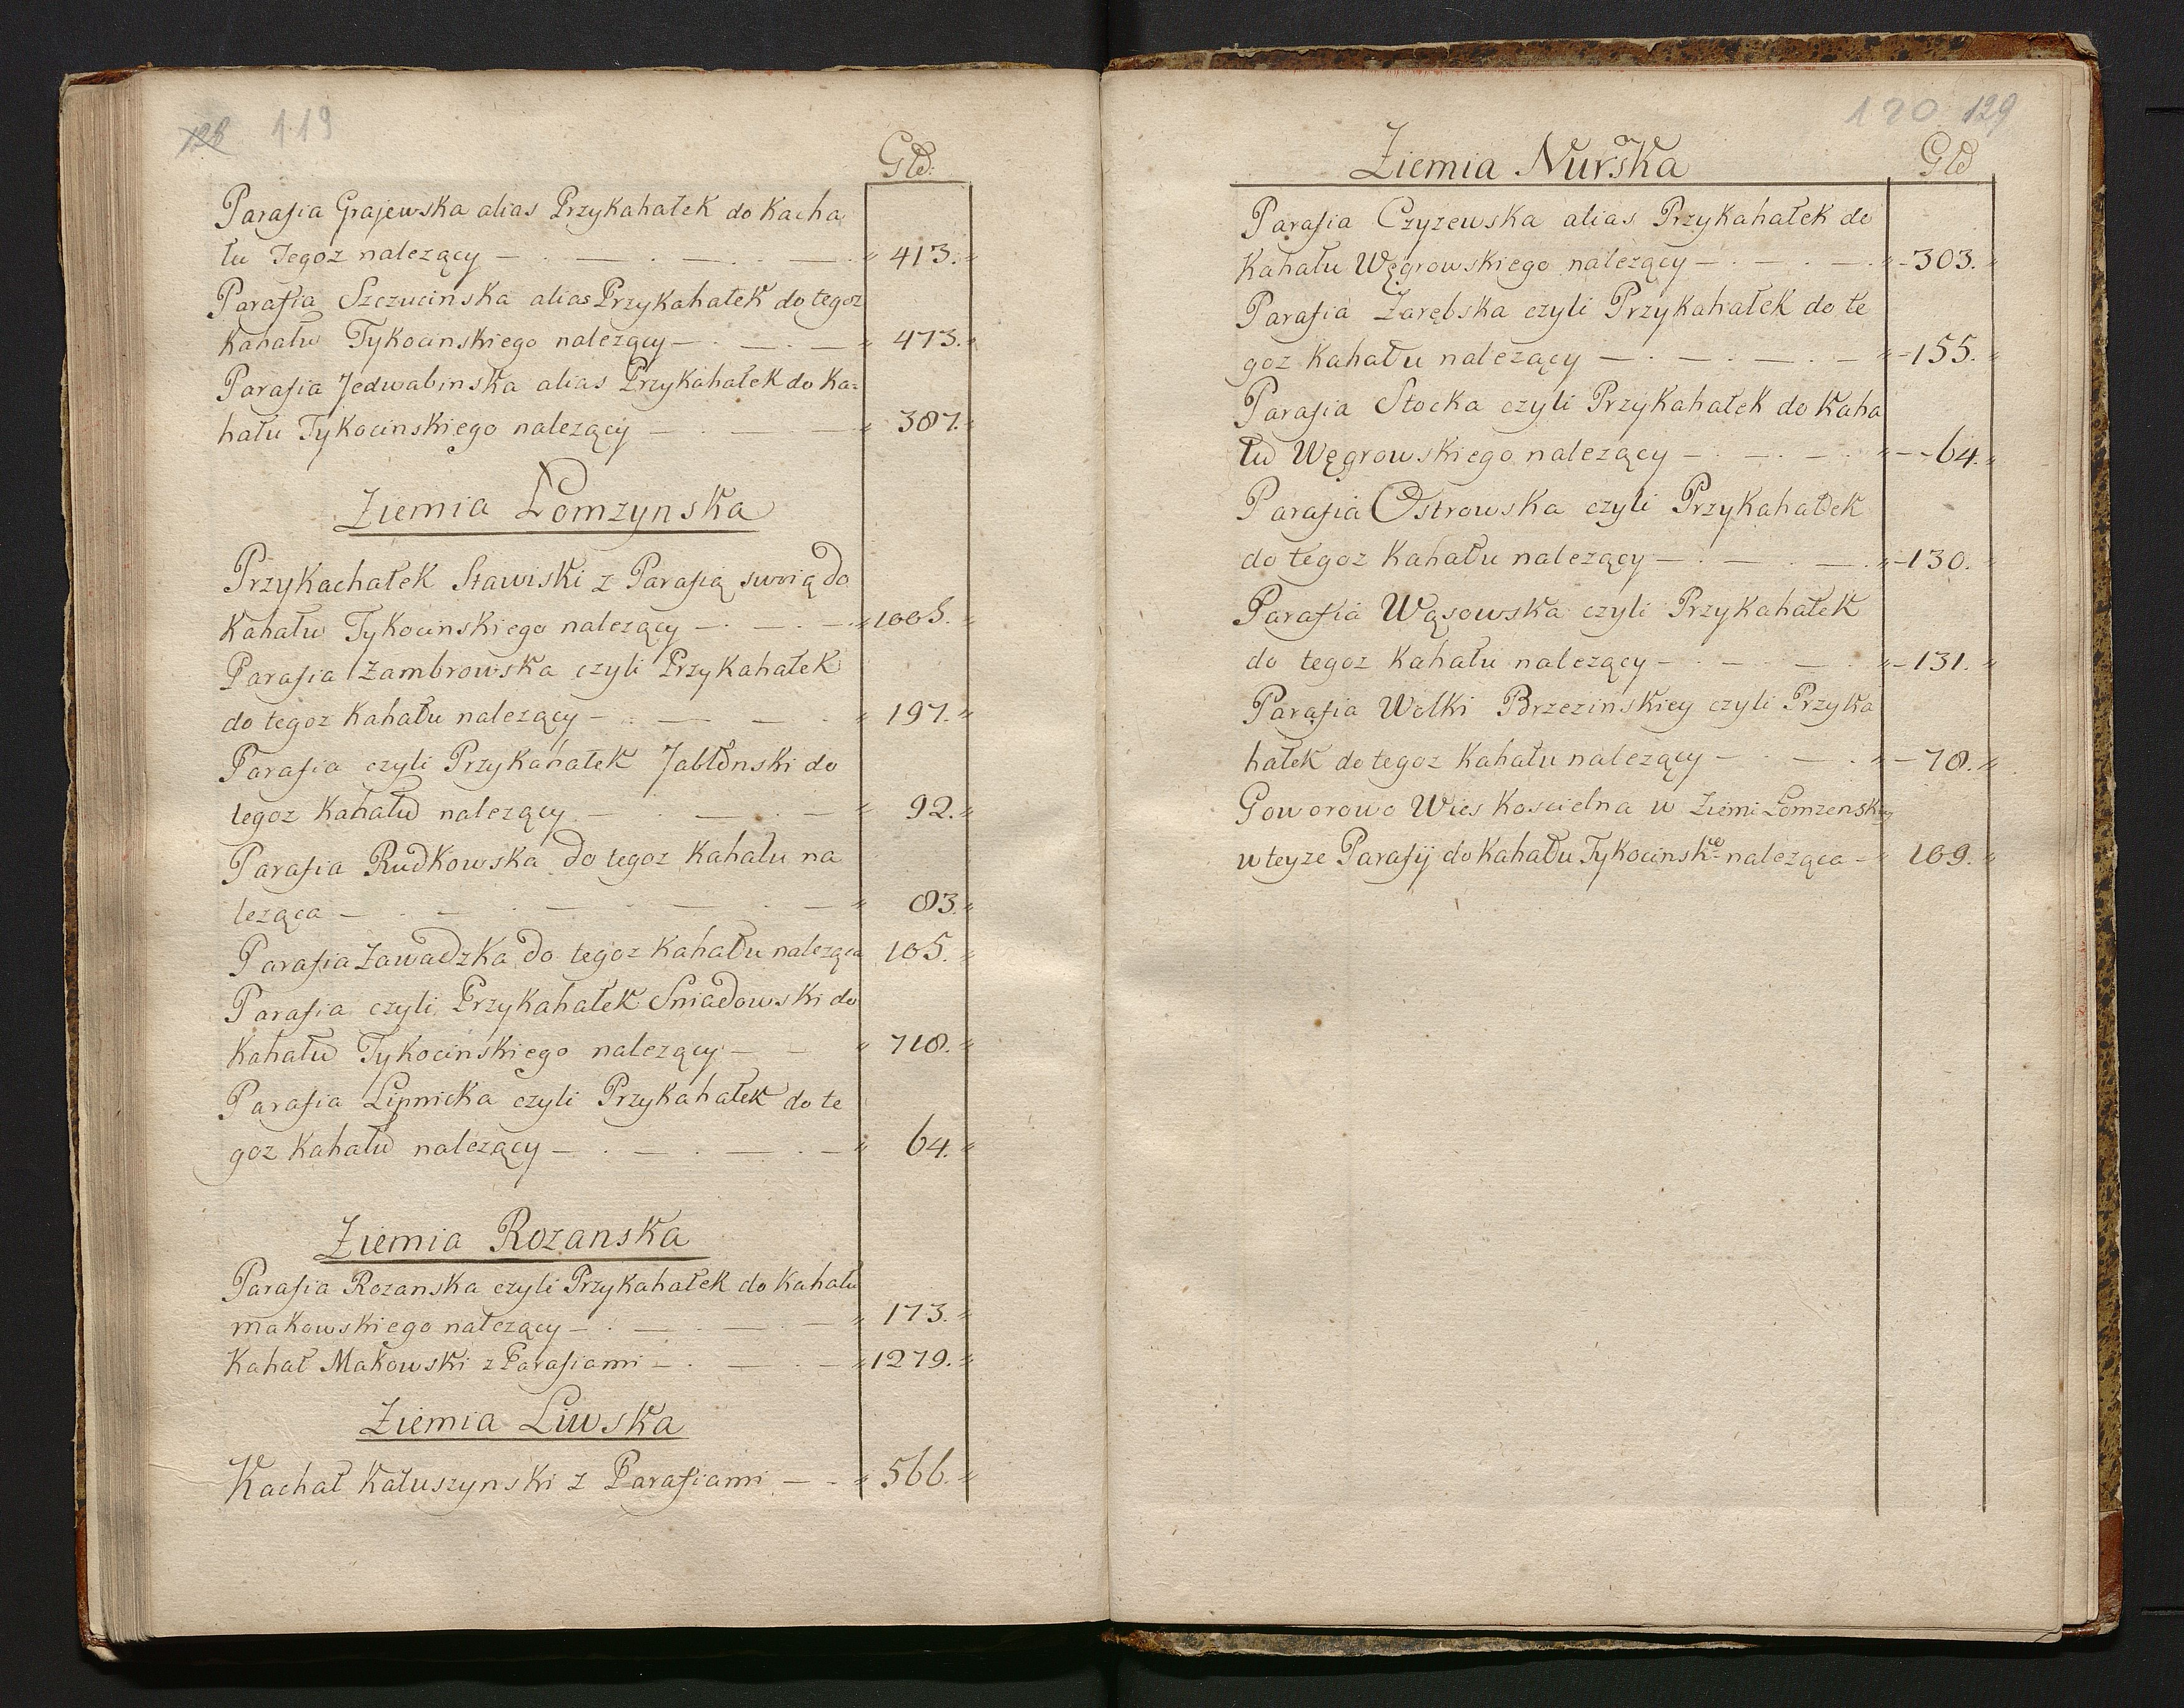 128 119
Głd:
Parafia Grajewska alias Przykahałek do Kacha
łu Tegoz nalezący 413.
Parafia Szczucinska alias Przykahałek do tegoz
Kahału Tykocinskiego nalezący 473.
Parafia Jedwabinska alias Przykahałek do Ka=
hału Tykocinskiego nalezący 387.
Ziemia Łomzynska
Przykachałek Stawiski z Parafią swoią do
Kahału Tykocinskiego nalezący
Parafia Zambrowska czyli Przykahałek
do tegoz Kahału nalezący 197.
Parafia czyli Przykahałek Jabłonski do
tegoz Kahału nalezący 92.
Parafia Rudkowska do tegoz Kahału na
leząca 83.
Parafia Zawadzka do tegoz Kahału naleząca 105.
Parafia czyli Przykahałek Sniadowski do
Kahału Tykocinskiego nalezący 718.
Parafia Lipnicka czyli Przykahałek do te
goz Kahału nalezący 64.
Ziemia Rozanska
Parafia Rozanska czyli Przykahałek do Kahału
makowskiego nalezący 173.
Kahał Makowski z Parafiami 1279.
Ziemia Liwska
Kachał Kałuszynski z Parafiami 566.
120 129
Ziemia Nurska
Głd
Parafia Czyzewska alias Przykahałek do
Kahału Węgrowskiego nalezący 303.
Parafia Zarębska czyli Przykahałek do te
goz Kahału nalezący 155.
Parafia Stocka czyli Przykahałek do Kaha
łu Węgrowskiego nalezący 64.
Parafia Ostrowska czyli Przykahałek
do tegoz Kahału nalezący 130.
Parafia Wąsowska czyli Przykahałek
do tegoz Kahału nalezący 131.
Parafia Wolki Brzezinskiey czyli Przyka
hałek do tegoz Kahału nalezący 78.
Goworowo Wies Koscielna w Ziemi Łomzenskiey
w teyze Parafij do Kahału Tykocinskgo naleząca 109.